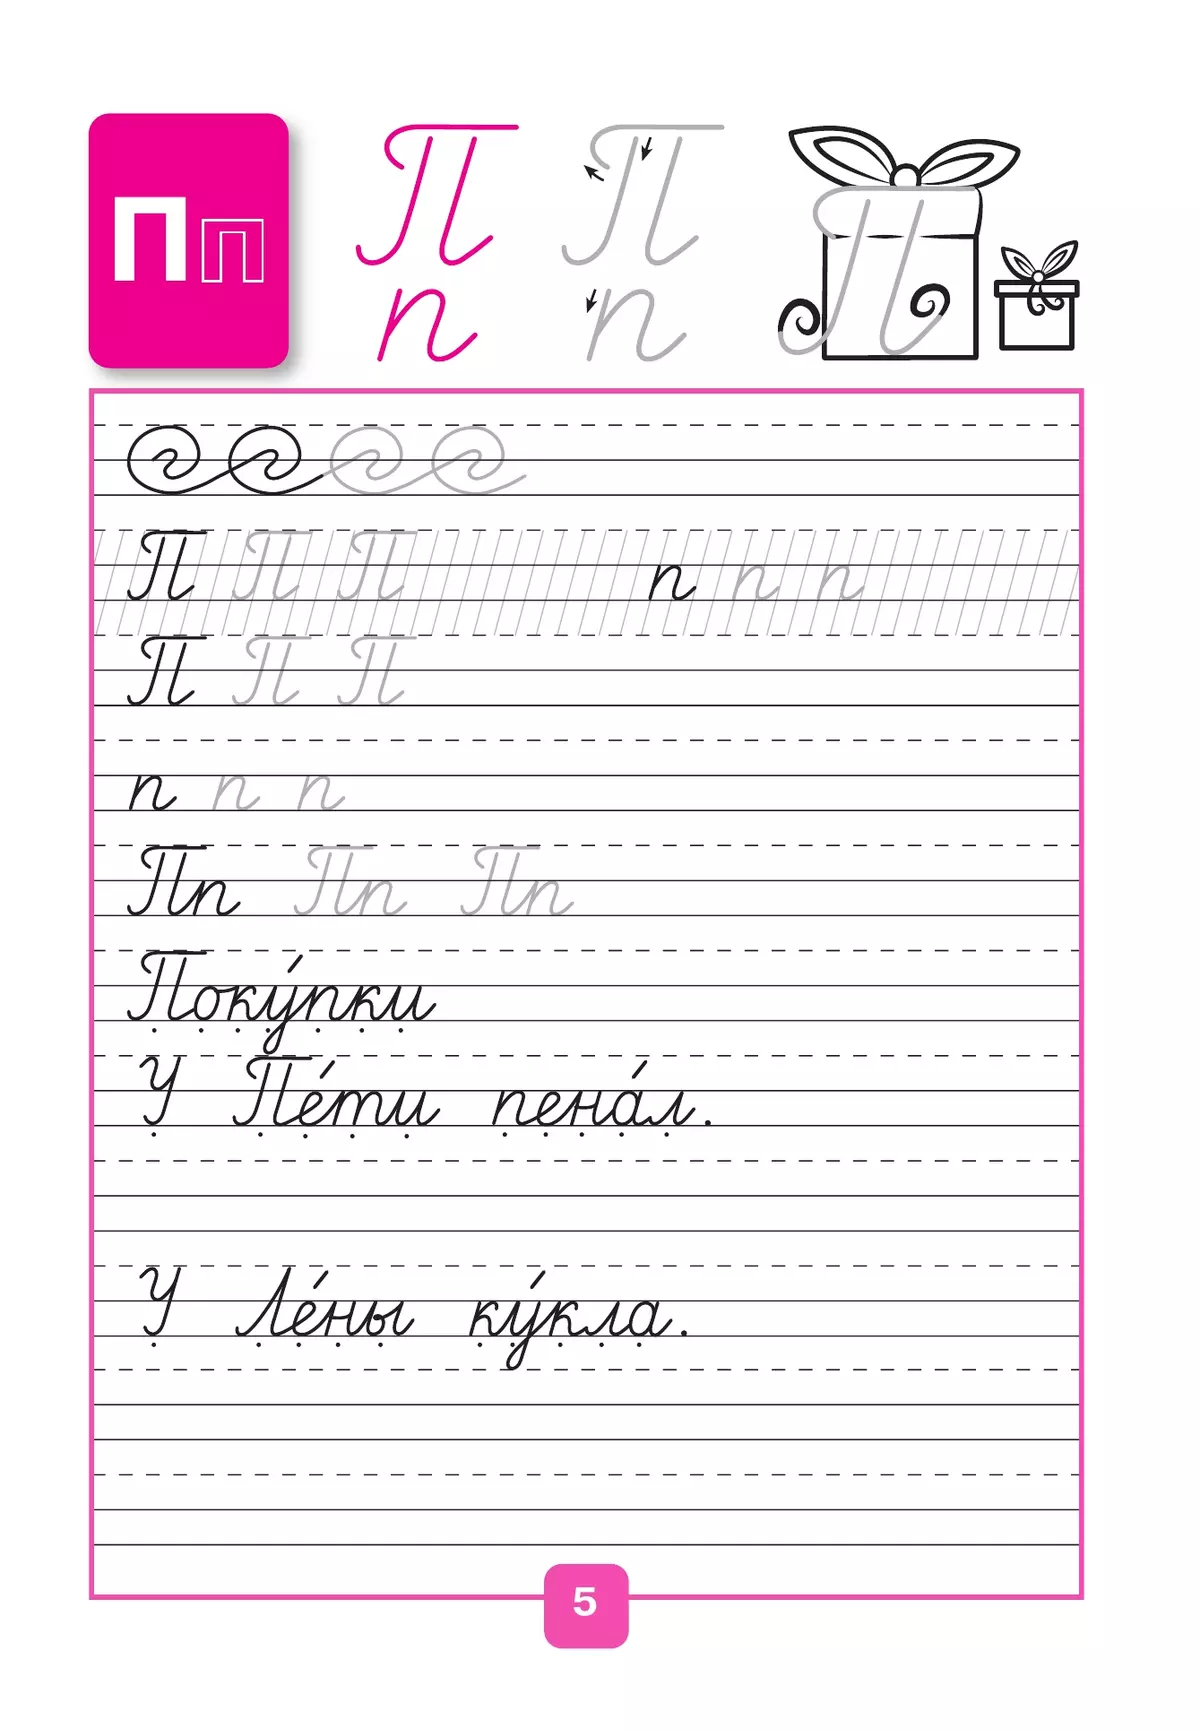 Пп
П П
п п П
П П П п п п
П П П
п п п
Пп Пп Пп
Поку́пки
У Пе́ти пена́л.
У Ле́ны ку́кла.
5